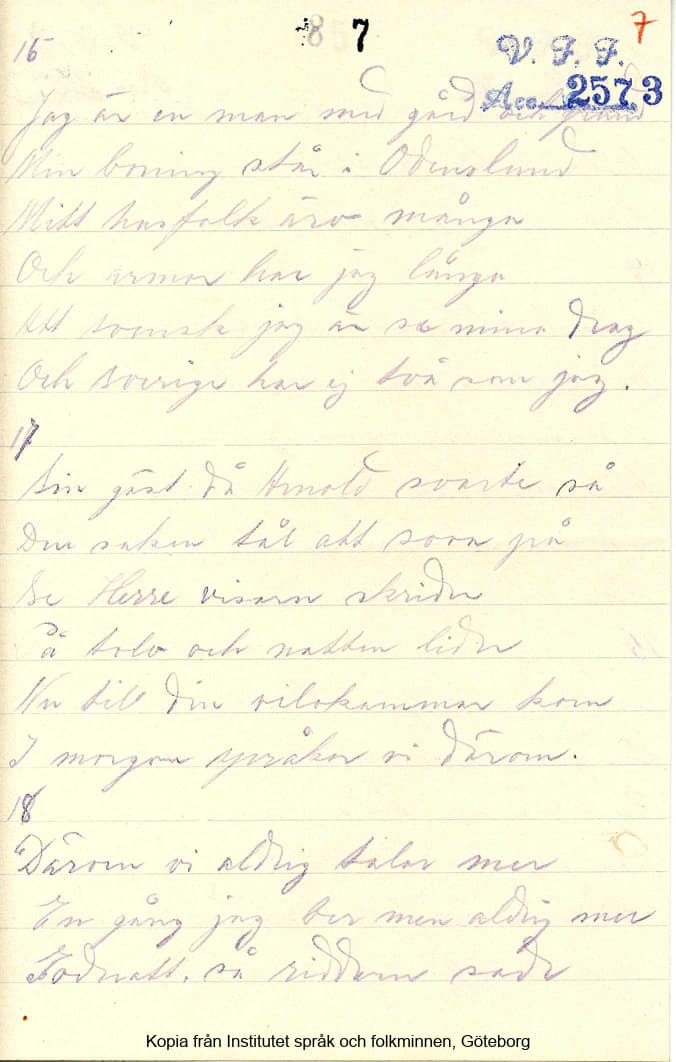 7
7
V. F. F.
Acc. 2573
16
Jag är en man med gård och grund
Min boning står i Odenslund
Mitt husfolk äro många
Och armar har jag långa
Att svensk jag är se mina drag
Och sverige har ej två som jag.
17
Sin gäst då Arnold svarte så
Den saken tål att sova på
Se Herre visarn skrider
På tolv och natten lider
Nu till din vilokammar kom
I morgon språkar vi därom.
18
"Därom vi aldrig talar mer
En gång jag ber men aldrig mer
Godnatt, så riddarn sade
Kopia från Institutet språk och folkminnen, Göteborg